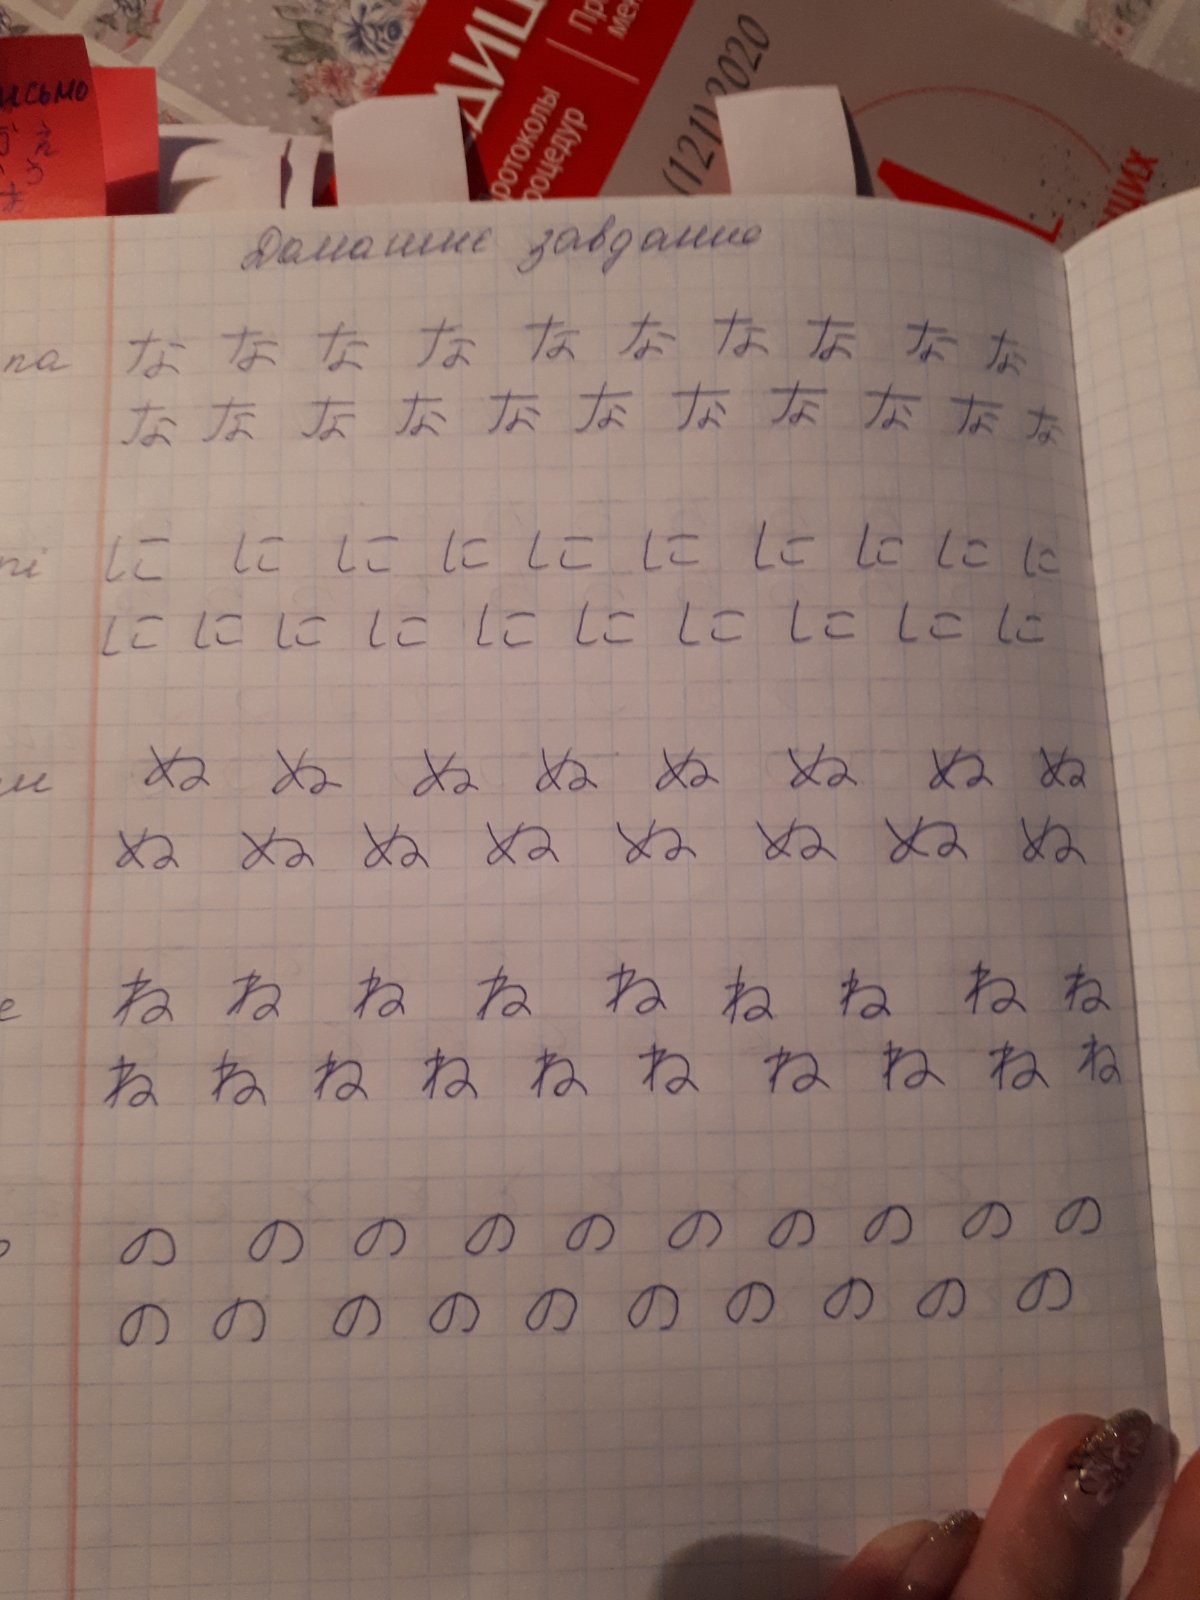 исьмо
протоколы
роцедур
(121) 2020
щих
Домашнє завдання
na な な な な な な な な な な
な な な な な な な な な な な
ni に に に に に に に に に に
に に に に に に に に に に
ぬ ぬ ぬ ぬ ぬ ぬ ぬ ぬ
ぬ ぬ ぬ ぬ ぬ ぬ ぬ ぬ
e ね ね ね ね ね ね ね ね ね
ね ね ね ね ね ね ね ね ね ね
の の の の の の の の の の
の の の の の の の の の の